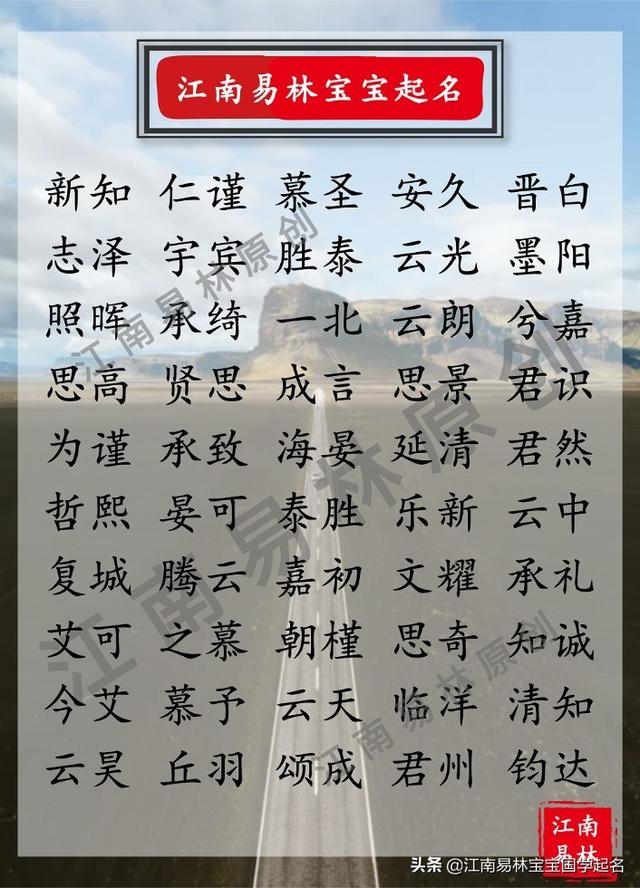 江南易林宝宝起名
新知 仁谨 慕圣 安久 晋白
志泽 宇宾 胜泰 云光 墨阳
照晖 承绮 一北 云朗 兮嘉
思高 贤思 成言 思景 君识
为谨 承致 海晏 延清 君然
哲熙 晏可 泰胜 乐新 云中
复城 腾云 嘉初 文耀 承礼
艾可 之慕 朝槿 思奇 知诚
今艾 慕予 云天 临洋 清知
云昊 丘羽 颂成 君州 钧达
江南易林原创
江南易林原创
江南易林原创
江南
易林
头条 @江南易林宝宝国学起名